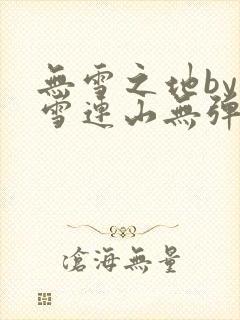 無雪之地by
雪連山無彈
滄海無量